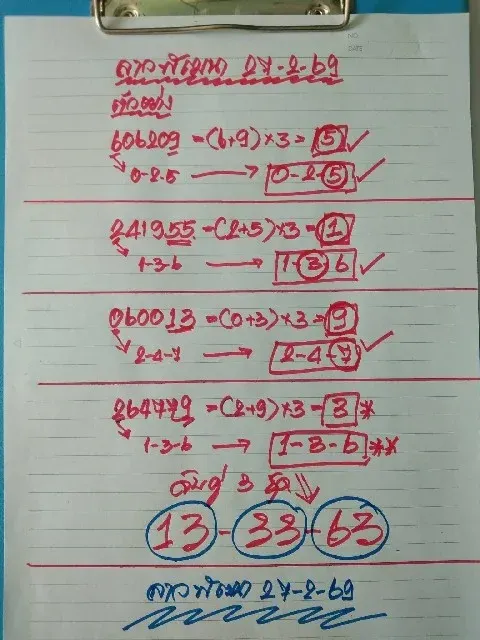 NO.
DATE
ลาวพัฒนา 27-2-69
ตัวอย่าง
606209 = (6+9)×3 = 5 ✓
0-2-5 → 0-2-5 ✓
241955 = (2+5)×3 = 1
1-3-6 → 1-3-6 ✓
060013 = (0+3)×3 = 9
2-4-7 → 2-4-7 ✓
264779 = (2+9)×3 = 3*
1-3-6 → 1-3-6 **
จับคู่ 3 ชุด
13 - 33 - 63
ลาวพัฒนา 27-2-69